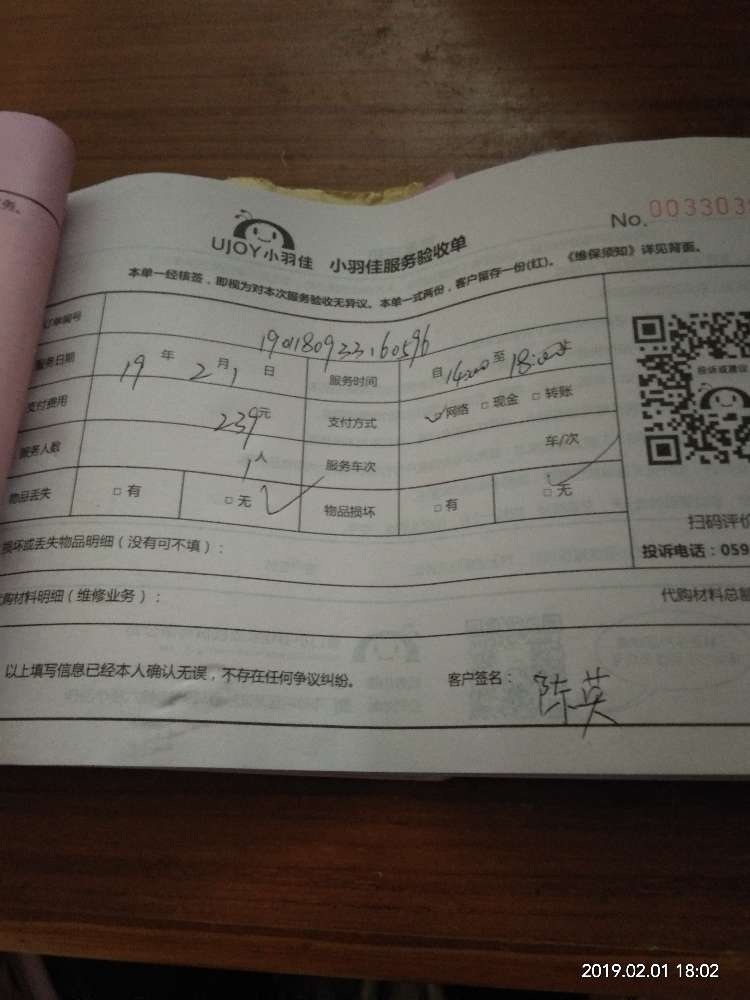 务。
No. 003303
UJOY小羽佳 小羽佳服务验收单
本单一经核签，即视为对本次服务验收无异议。本单一式两份，客户留存一份(红)。《维保须知》详见背面。
订单编号 1901180933160596
服务日期 19年 2月 1日 服务时间 自14:00至18:00
支付费用 239元 支付方式 网络 □ 现金 □ 转账
服务人数 1人 服务车次 车/次
物品丢失 □ 有 □ 无 物品损坏 □ 有 □ 无
投诉或建议
扫码评价
投诉电话：059
损坏或丢失物品明细（没有可不填）：
代购材料明细（维修业务）： 代购材料总额
以上填写信息已经本人确认无误，不存在任何争议纠纷。 客户签名： 陈英
2019.02.01 18:02